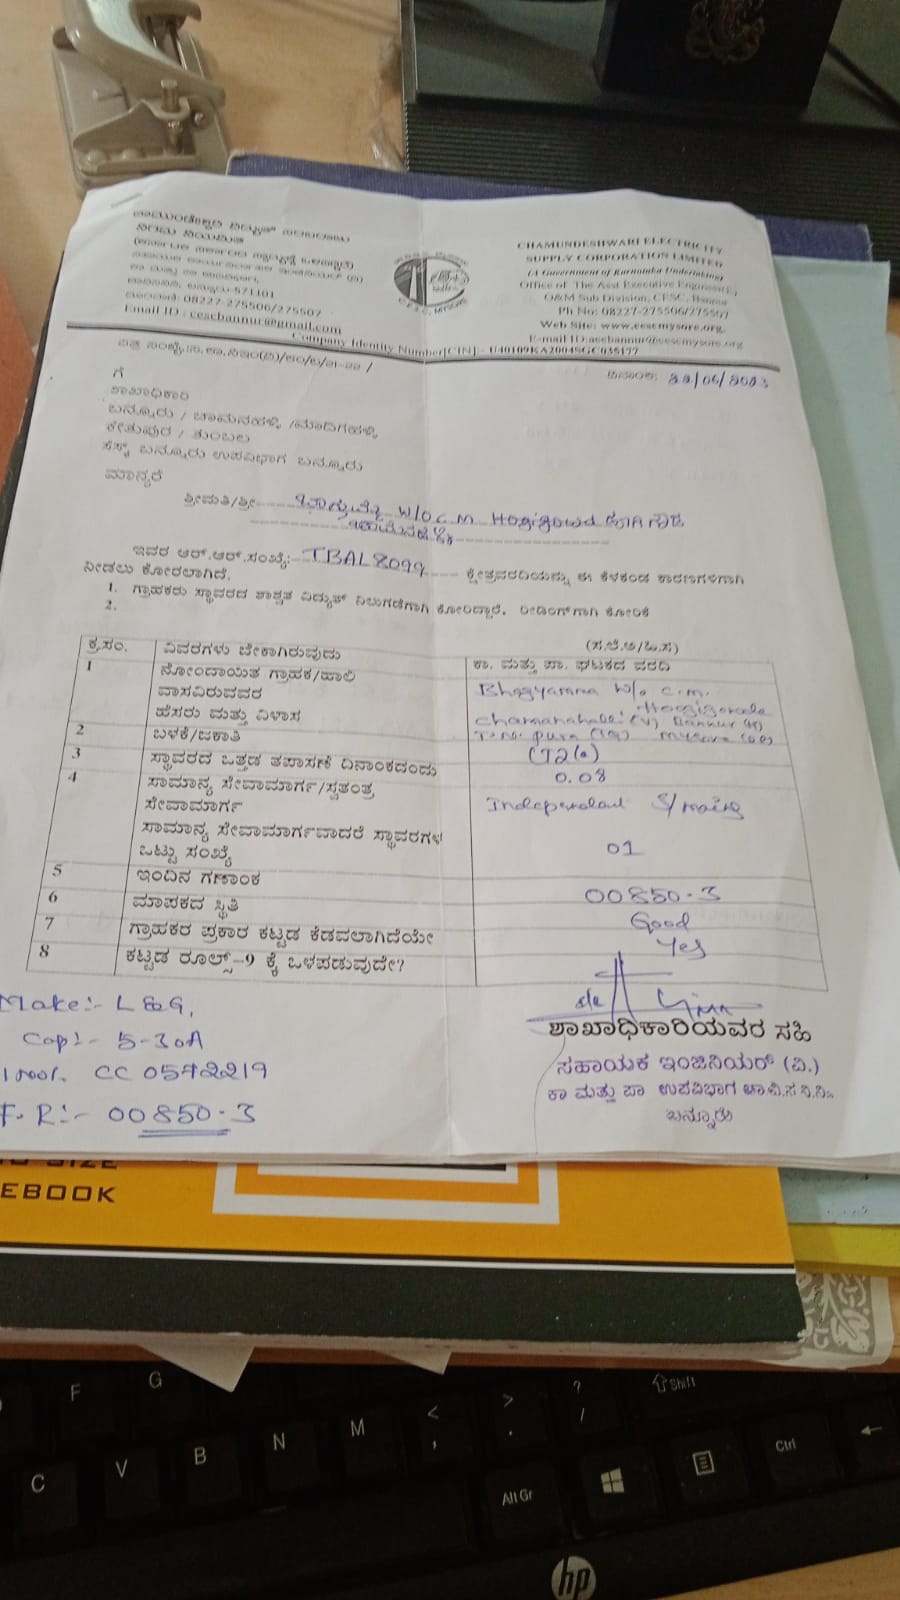 ಚಾಮುಂಡೇಶ್ವರಿ ವಿದ್ಯುತ್ ಸರಬರಾಜು
ನಿಗಮ ನಿಯಮಿತ
08227-275506/275507
Email ID : cescbannur@gmail.com
CHAMUNDESHWARI ELECTRICITY
SUPPLY CORPORATION LIMITED
(A Government of Karnataka Undertaking)
Office of The Asst Executive Engineer(),
O&M Sub Division, CESC, Bannur
Ph No: 08227-275506/275507
Web Site: www.cescmysore.org,
E-mail ID:aeebannur@cescmysore.org
Company Identity Number[CIN]:- U40109KA2004SGC035177
ದಿನಾಂಕ: 22/06/2023
ಗೆ
ಶಾಖಾಧಿಕಾರಿ
ಬನ್ನೂರು / ಚಾಮನಹಳ್ಳಿ /ಮಾದಿಗಹಳ್ಳಿ
ಕೇತುಪುರ / ತುಂಬಲ
ಸೆಸ್ಕ್ ಬನ್ನೂರು ಉಪವಿಭಾಗ ಬನ್ನೂರು
ಮಾನ್ಯರೆ
ಶ್ರೀಮತಿ/ಶ್ರೀ ಭಾಗ್ಯಮ್ಮ W/O C.M
ಚಾಮನಹಳ್ಳಿ
ಇವರ ಆರ್.ಆರ್.ಸಂಖ್ಯೆ: TBAL8099 ಕ್ಷೇತ್ರವರದಿಯನ್ನು ಈ ಕೆಳಕಂಡ ಕಾರಣಗಳಿಗಾಗಿ
ನೀಡಲು ಕೋರಲಾಗಿದೆ.
1. ಗ್ರಾಹಕರು ಸ್ಥಾವರದ ಶಾಶ್ವತ ವಿದ್ಯುತ್ ನಿಲುಗಡೆಗಾಗಿ ಕೋರಿದ್ದಾರೆ. ರೀಡಿಂಗ್‌ಗಾಗಿ ಕೋರಿಕೆ
2.
(ಸ.ಲೆ.ಅ/ಹಿ.ಸ)
ಕ್ರ.ಸಂ. ವಿವರಗಳು ಬೇಕಾಗಿರುವುದು ಕಾ. ಮತ್ತು ಪಾ. ಘಟಕದ ವರದಿ
1 ನೋಂದಾಯಿತ ಗ್ರಾಹಕ/ಹಾಲಿ Bhagyamma W/o C.M.
ವಾಸವಿರುವವರ Hoggigowda
ಹೆಸರು ಮತ್ತು ವಿಳಾಸ Chamanahalli (V) Bannur (H)
T.N. pura (Tq) Mysore (D)
2 ಬಳಕೆ/ಜಕಾತಿ LT2(a)
3 ಸ್ಥಾವರದ ಒತ್ತಡ ತಪಾಸಣೆ ದಿನಾಂಕದಂದು 0.08
4 ಸಾಮಾನ್ಯ ಸೇವಾಮಾರ್ಗ/ಸ್ವತಂತ್ರ Independant S/mains
ಸೇವಾಮಾರ್ಗ
ಸಾಮಾನ್ಯ ಸೇವಾಮಾರ್ಗವಾದರೆ ಸ್ಥಾವರಗಳ 01
ಒಟ್ಟು ಸಂಖ್ಯೆ
5 ಇಂದಿನ ಗಣಾಂಕ 00850.3
6 ಮಾಪಕದ ಸ್ಥಿತಿ Good
7 ಗ್ರಾಹಕರ ಪ್ರಕಾರ ಕಟ್ಟಡ ಕೆಡವಲಾಗಿದೆಯೇ Yes
8 ಕಟ್ಟಡ ರೂಲ್ಸ್-9 ಕ್ಕೆ ಒಳಪಡುವುದೇ?
Make:- L&G,
Cap:- 5-30A
CC 0542219
F.R:- 00850.3
ಶಾಖಾಧಿಕಾರಿಯವರ ಸಹಿ
ಸಹಾಯಕ ಇಂಜಿನಿಯರ್ (ವಿ.)
ಕಾ ಮತ್ತು ಪಾ ಉಪವಿಭಾಗ ಚಾ.ವಿ.ಸ.ನಿ.ನಿ.
ಬನ್ನೂರು
SIZE
EBOOK
F G ? / Shift
C V B N M < , > .
Alt Gr Ctrl
hp